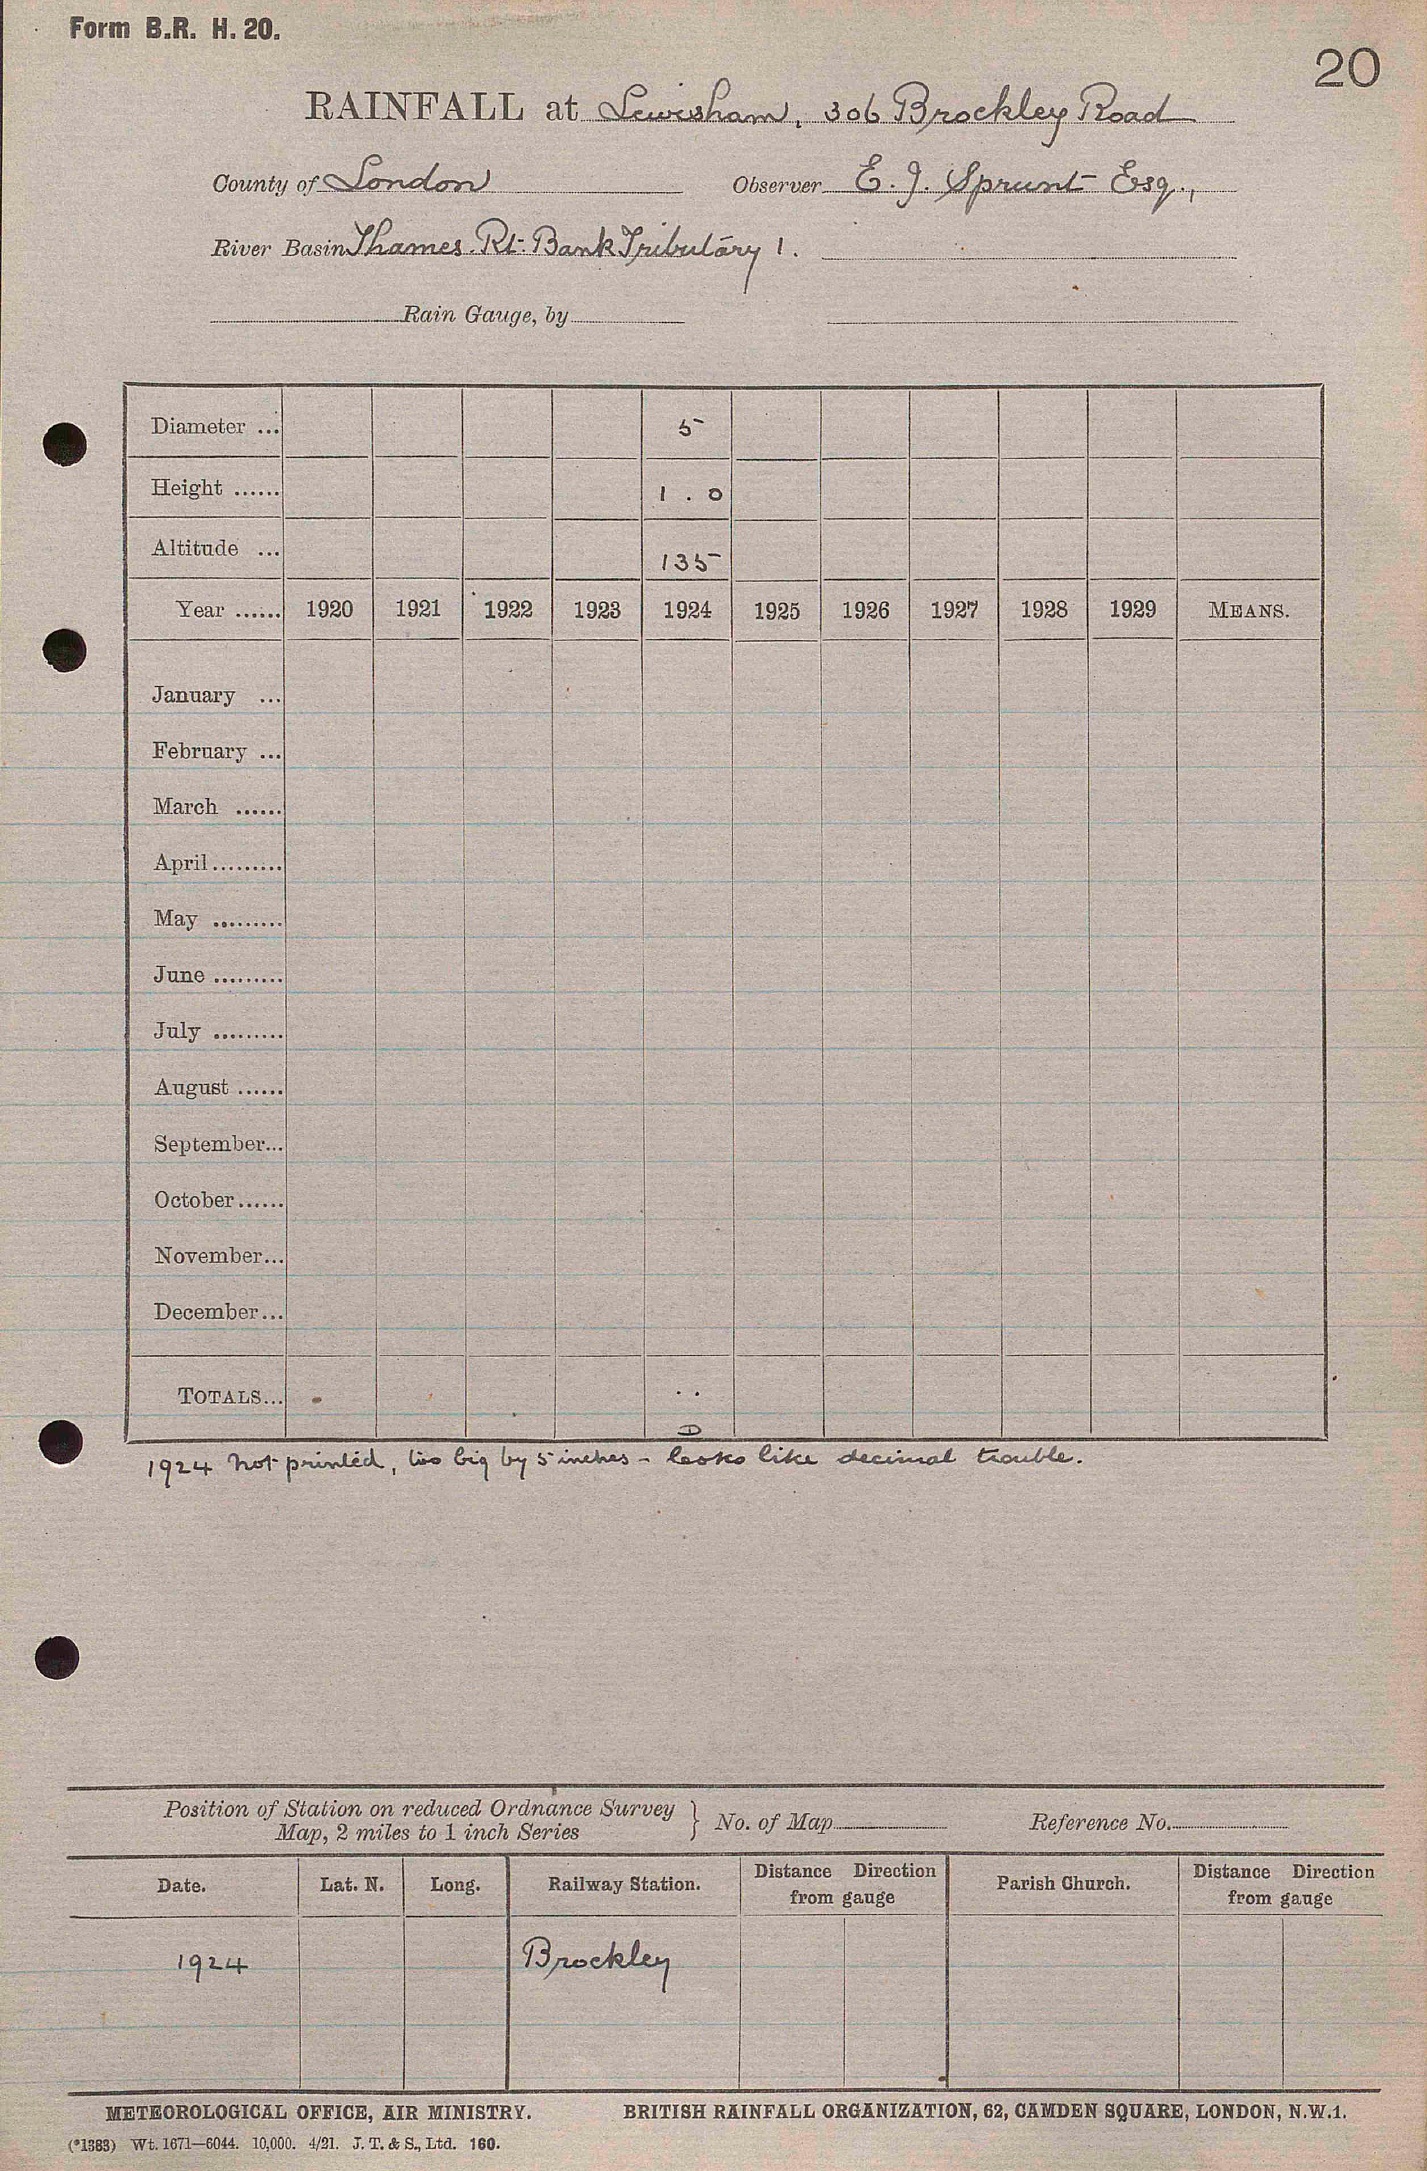 Form B.R. H. 20.
20
RAINFALL at Lewisham, 306 Brockley Road
County of London Observer E. J. Sprunt Esq.,
River Basin Thames. Rt. Bank Tributary 1.
Rain Gauge, by
Diameter ... 5
Height ...... 1.0
Altitude ... 135
Year ...... 1920 1921 1922 1923 1924 1925 1926 1927 1928 1929 MEANS.
January ...
February ...
March ......
April.........
May .........
June .........
July .........
August ......
September...
October......
November...
December...
TOTALS... ..
1924 not printed, too big by 5 inches - looks like decimal trouble.
Position of Station on reduced Ordnance Survey
Map, 2 miles to 1 inch Series } No. of Map Reference No.
Date. Lat. N. Long. Railway Station. Distance Direction from gauge Parish Church. Distance Direction from gauge
1924 Brockley
METEOROLOGICAL OFFICE, AIR MINISTRY. BRITISH RAINFALL ORGANIZATION, 62, CAMDEN SQUARE, LONDON, N.W.1.
(*1383) Wt. 1671—6044. 10,000. 4/21. J. T. & S., Ltd. 160.